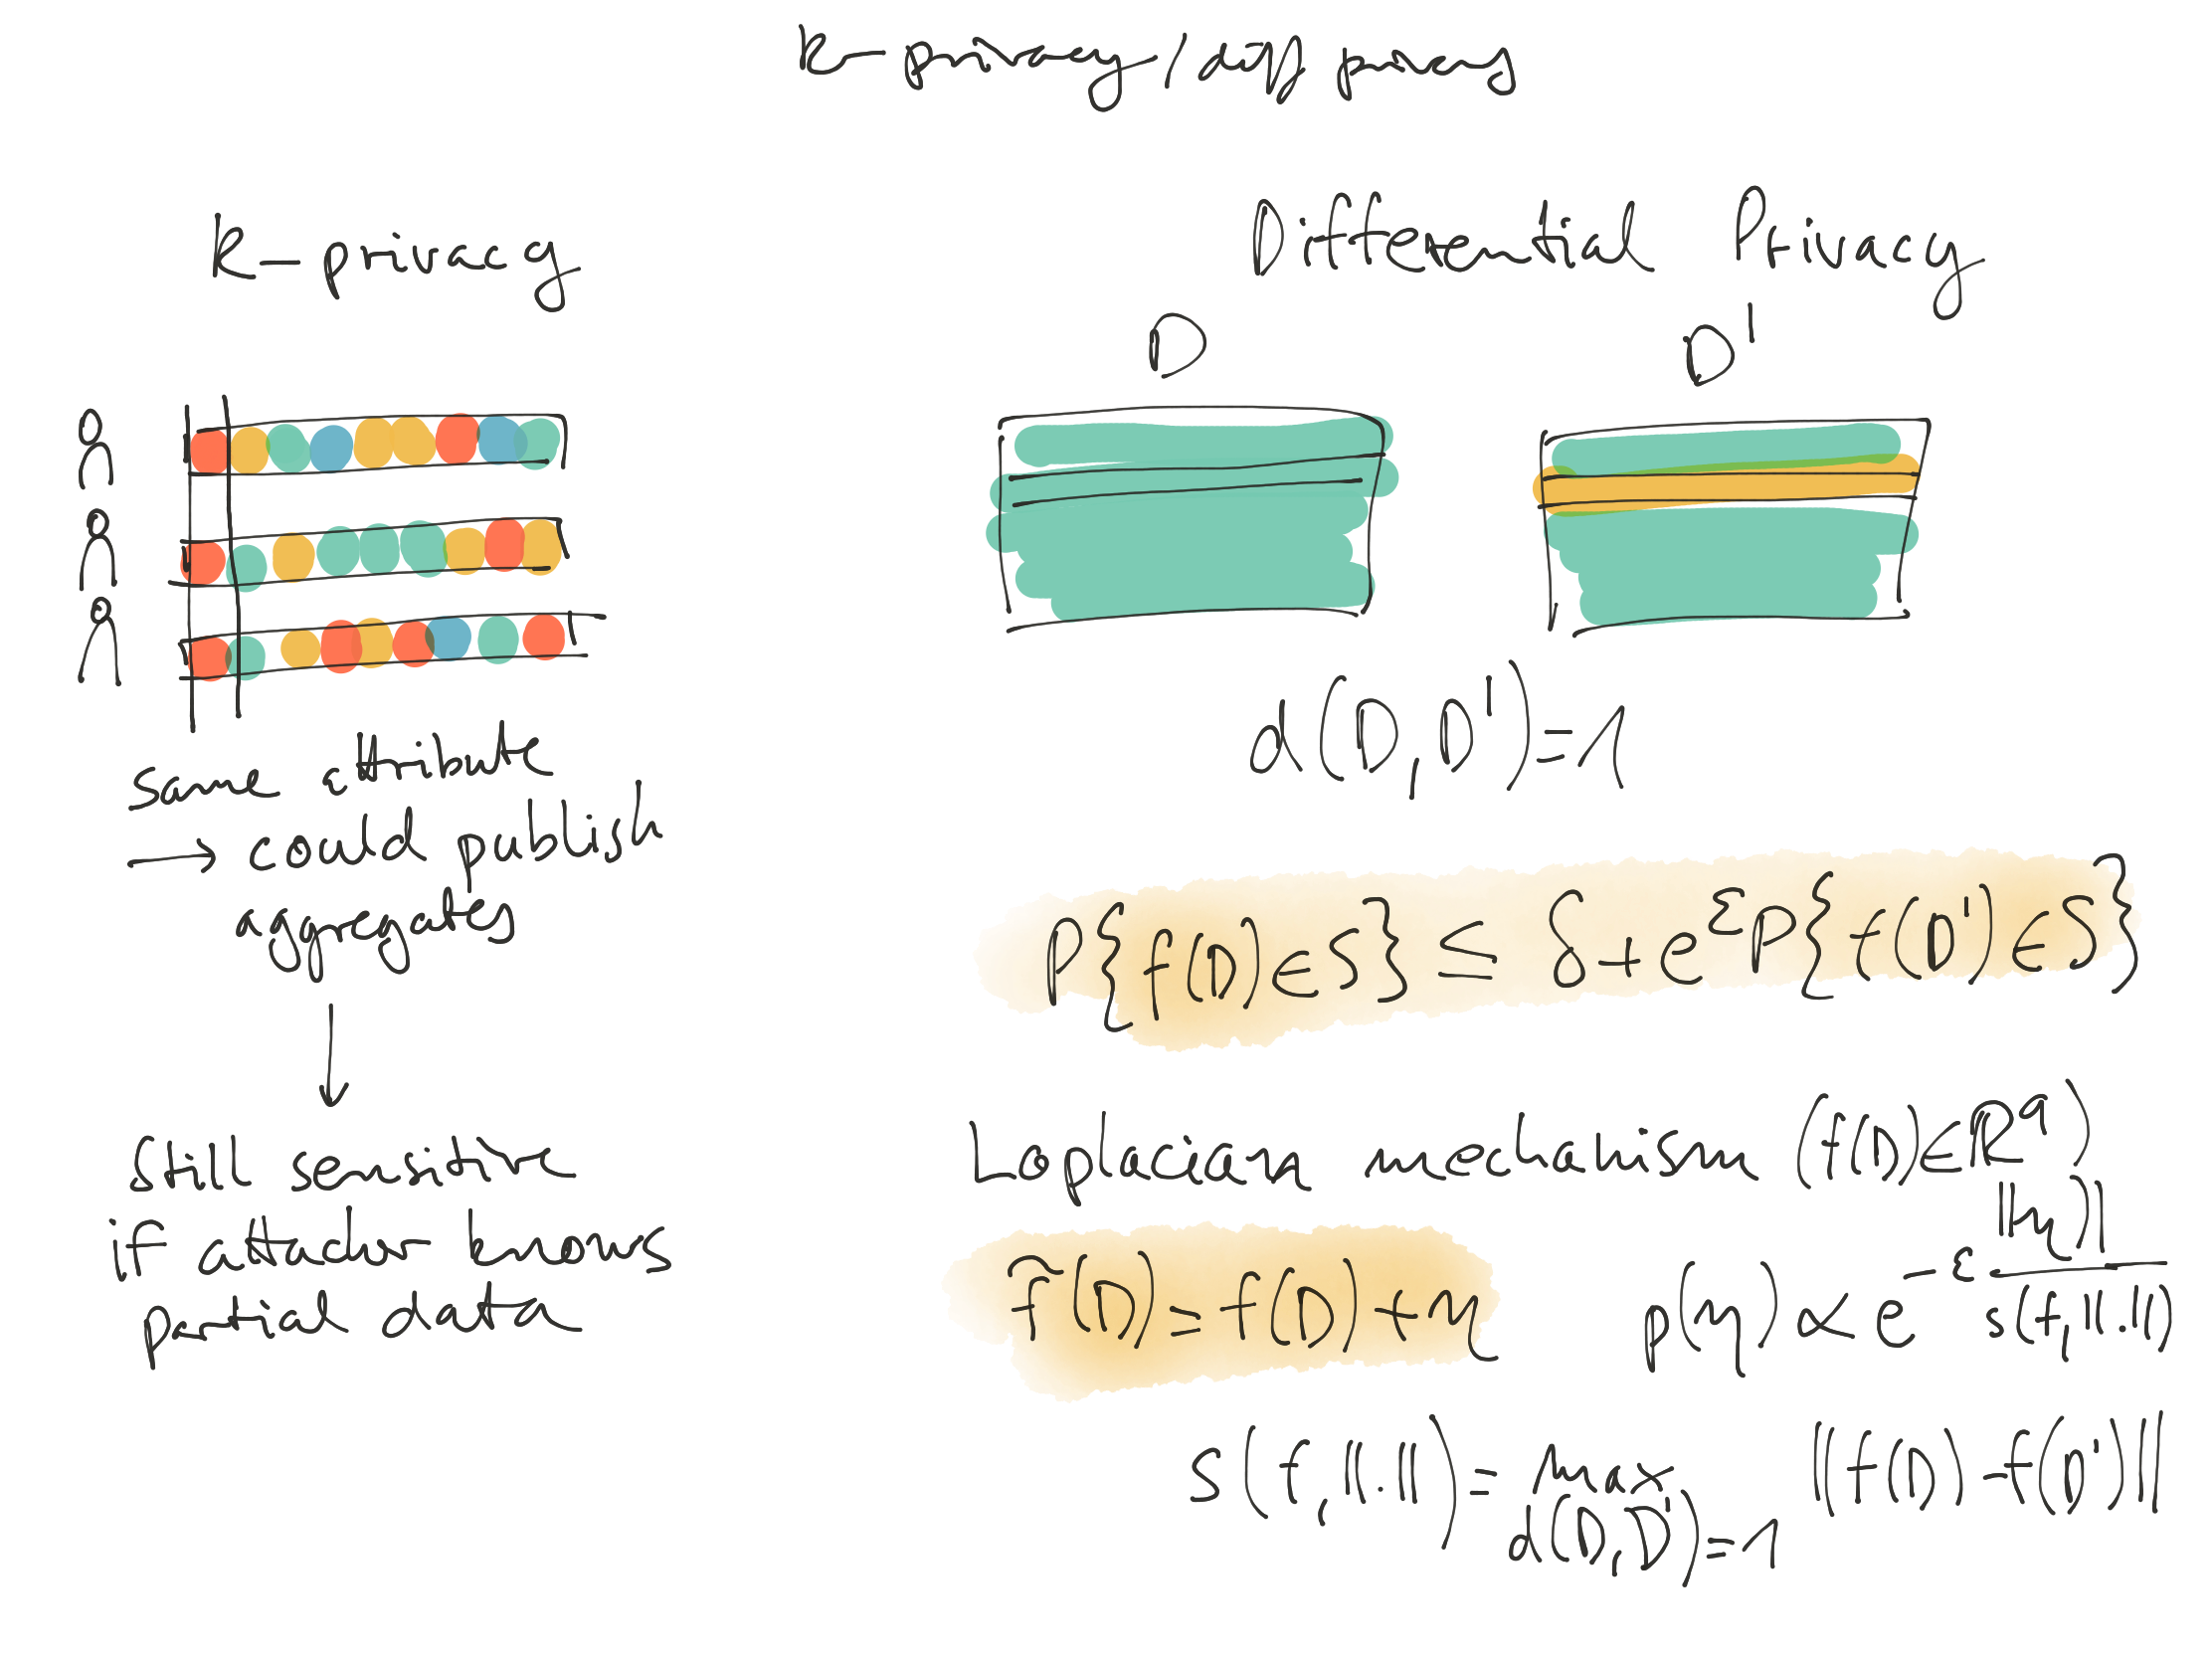 k-privacy/diff privacy
k-privacy
same attribute
→ could publish
aggregates
Still sensitive
if attacker knows
partial data
Differential Privacy
D D'
d(D,D')=1
P{f(D)∈S} ≤ δ+e^ε P{f(D')∈S}
Laplacian mechanism (f(D)∈ℝ^q)
f̃(D)=f(D)+η p(η)∝e^(-ε ||η||/s(f,||.||))
s(f,||.||)= max_{d(D,D')=1} ||f(D)-f(D')||